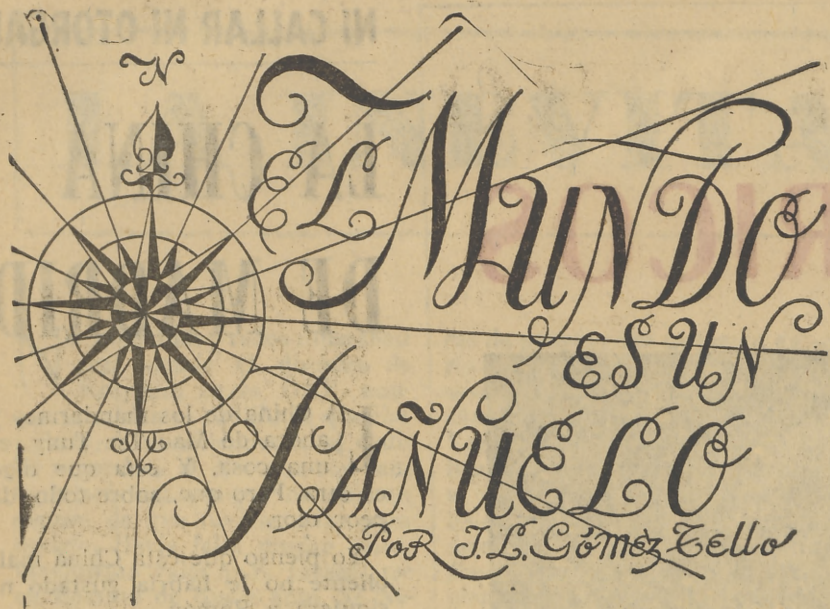 N
EL MUNDO
ES UN
PAÑUELO
Por J.L. Gómez Tello